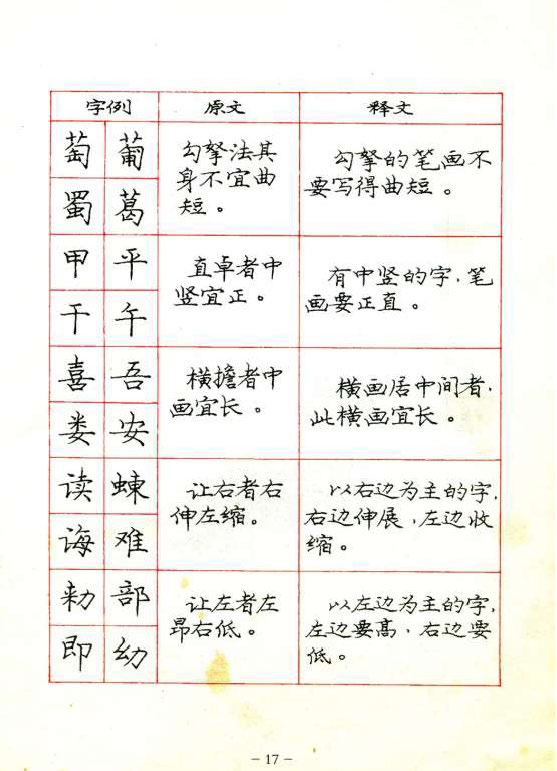 字例 原文 释文
萄 葡
蜀 葛
勾拏法其
身不宜曲
短。
勾拏的笔画不
要写得曲短。
甲 平
干 午
直卓者中
竖宜正。
有中竖的字,笔
画要正直。
喜 吾
娄 安
横担者中
画宜长。
横画居中间者,
此横画宜长。
读 蝀
诲 难
让右者右
伸左缩。
以右边为主的字,
右边伸展,左边收
缩。
敕 部
即 幼
让左者左
昂右低。
以左边为主的字,
左边要高,右边要
低。
– 17 –